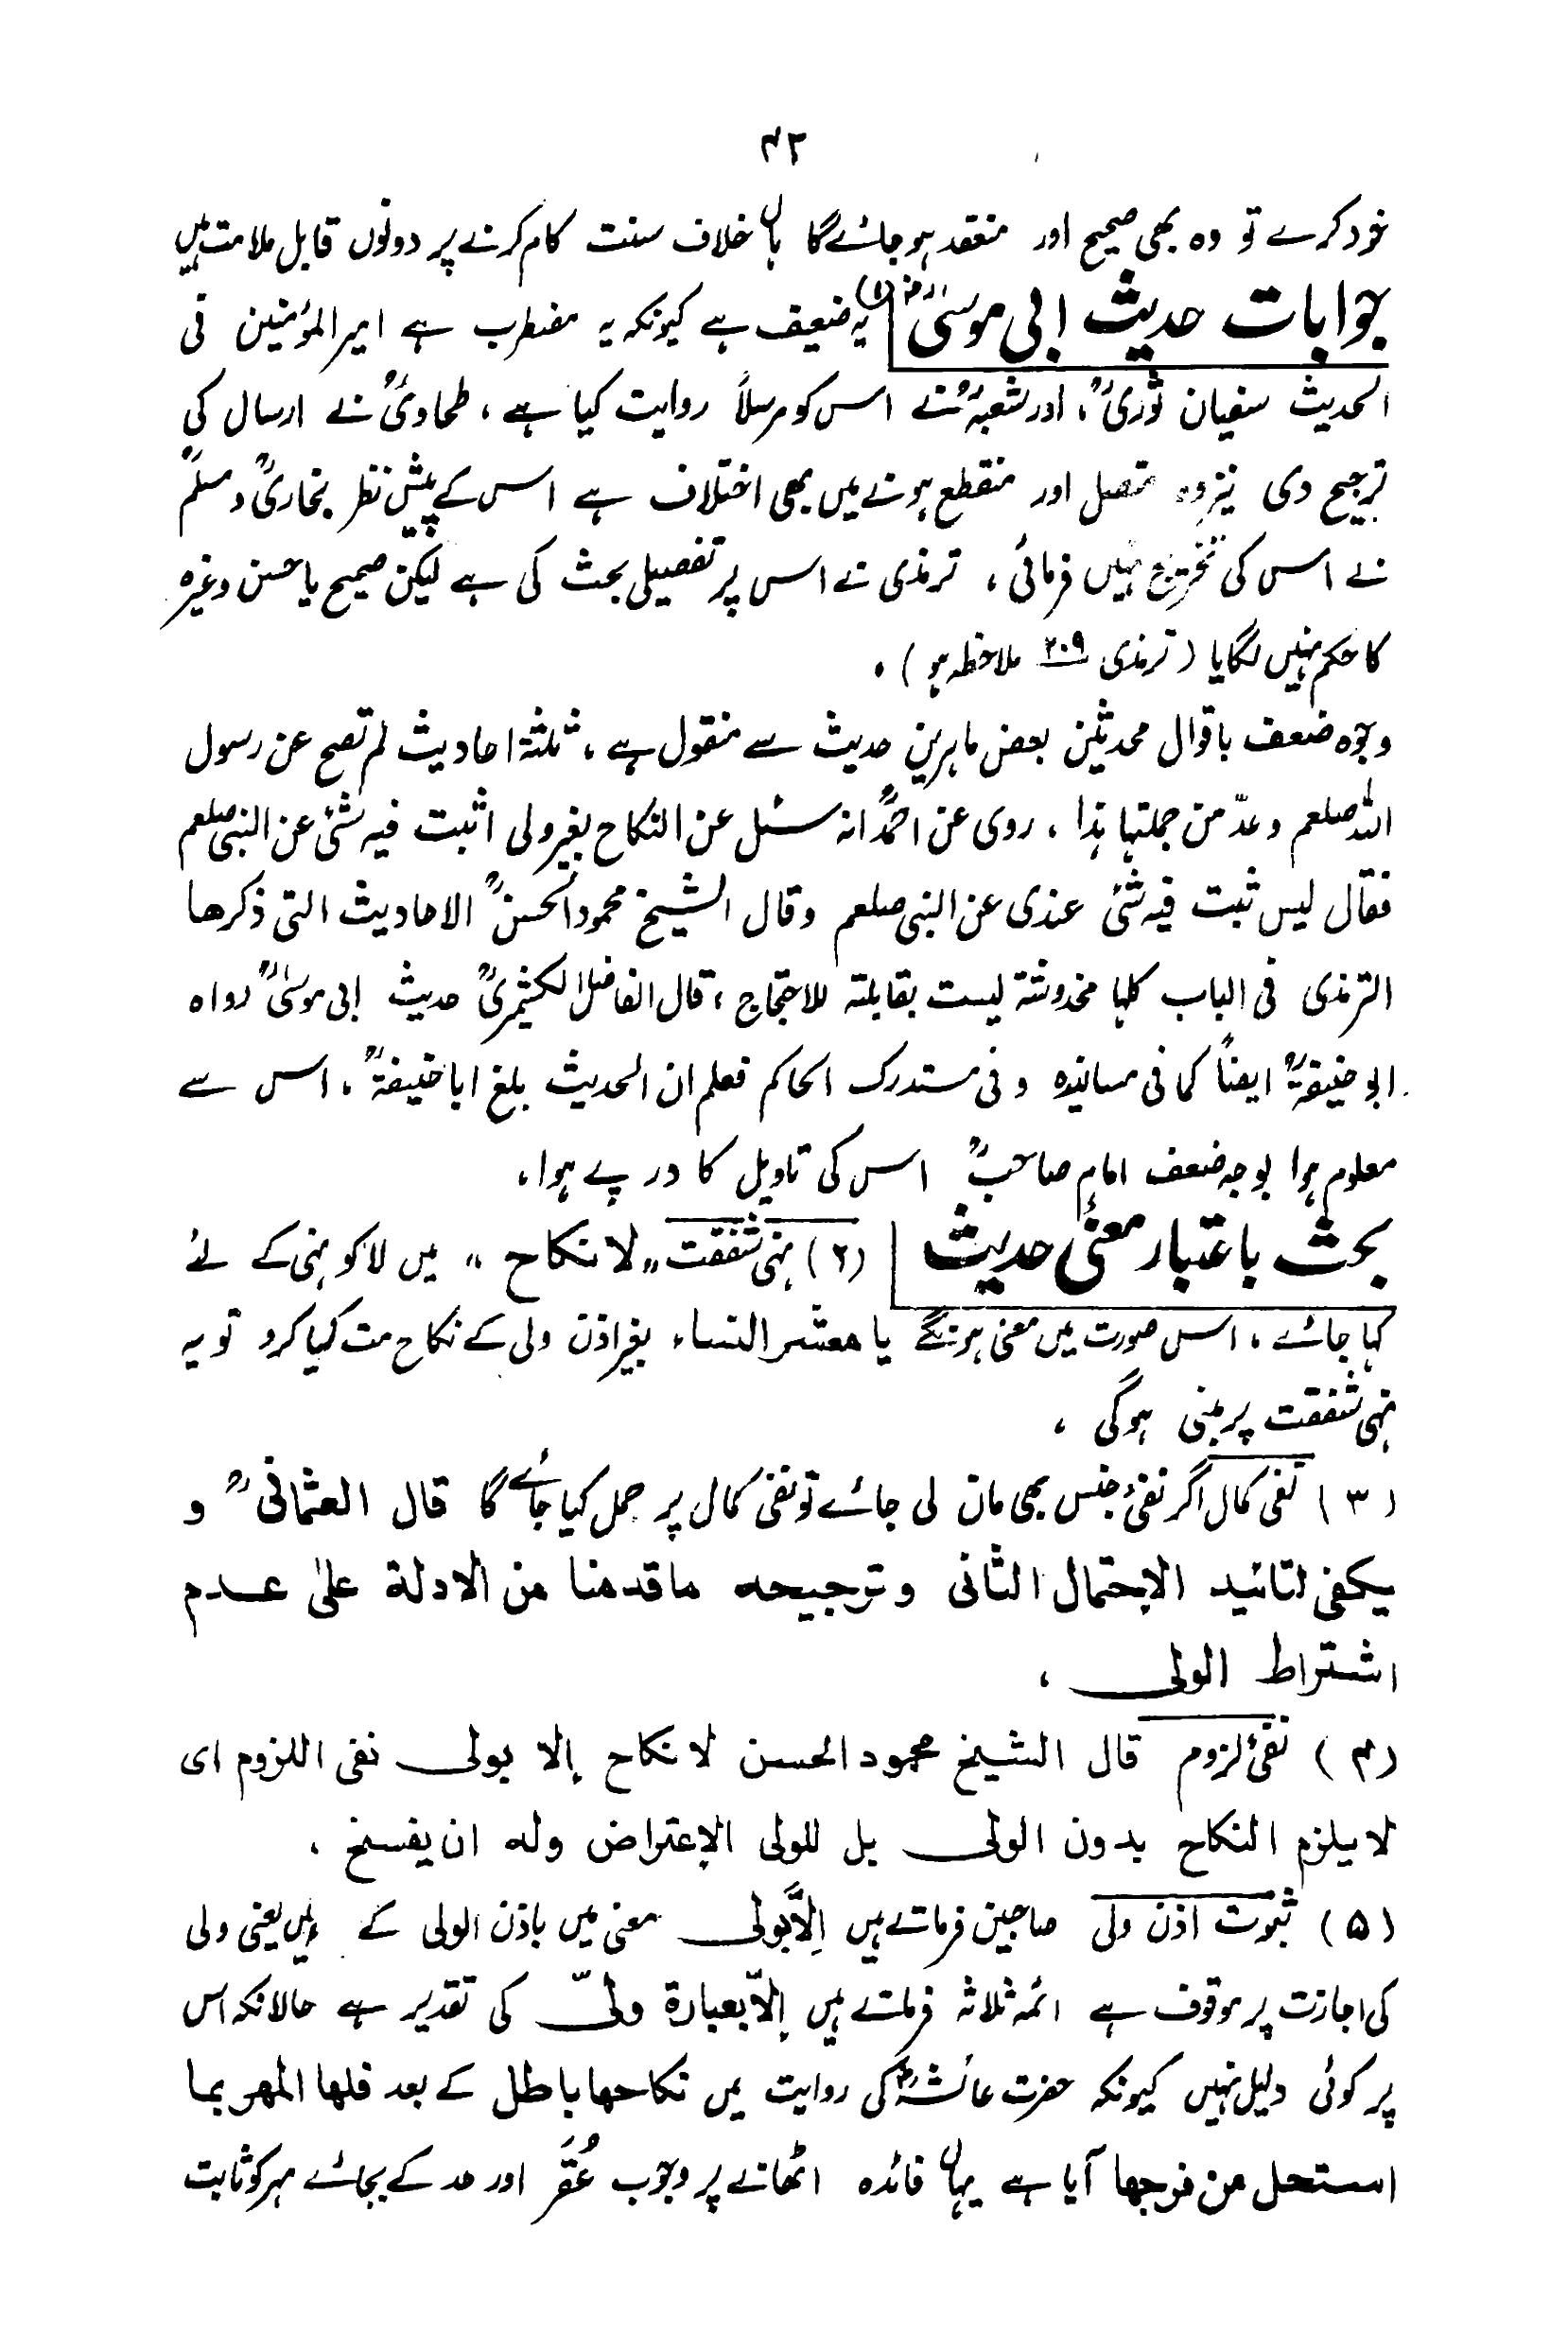 ۴۲
خود کرے تو وہ بھی صحیح اور منعقد ہو جائے گا ہاں خلاف سنت کام کرنے پر دونوں قابل ملامت ہیں
جوابات حدیث ابی موسیٰؓ (۱) یہ ضعیف ہے کیونکہ یہ مضطرب ہے امیر المؤمنین فی
الحدیث سفیان ثوریؒ، اور شعبہؒ نے اس کو مرسلاً روایت کیا ہے، طحاویؒ نے ارسال کی
ترجیح دی نیز وہ متصل اور منقطع ہونے میں بھی اختلاف ہے اس کے پیش نظر بخاریؒ و مسلمؒ
نے اس کی تخریج نہیں فرمائی، ترمذی نے اس پر تفصیلی بحث کی ہے لیکن صحیح یا حسن وغیرہ
کا حکم نہیں لگایا (ترمذی ۲۰۹ ملاحظہ ہو)۔
وجوہ ضعف باقوال محدثین بعض ماہرین حدیث سے منقول ہے، ثلثۃ احادیث لم تصح عن رسول
اللہ صلعم وعدّ من جملتہا ہذا، روی عن احمدؒ انہ سئل عن النکاح بغیر ولی اثبت فیہ شئ عن النبی صلعم
فقال لیس ثبت فیہ شئ عندی عن النبی صلعم وقال الشیخ محمود الحسنؒ الاحادیث التی ذکرھا
الترمذی فی الباب کلہا مخدوشۃ لیست بقابلۃ للاحتجاج، قال الفاضل الکشمیریؒ حدیث ابی موسیٰؓ رواہ
ابو حنیفۃؒ ایضاً کما فی مسانیدہ وفی مستدرک الحاکم فعلم ان الحدیث بلغ ابا حنیفۃؒ، اس سے
معلوم ہوا بوجہ ضعف امام صاحبؒ اس کی تاویل کا در پے ہوا،
بحث باعتبار معنیٔ حدیث (۲) نہی شفقت "لا نکاح" میں لا کو نہی کے لئے
کہا جائے، اس صورت میں معنی ہونگے یا معشر النساء بغیر اذن ولی کے نکاح مت کیا کرو تو یہ
نہی شفقت پر مبنی ہوگی،
(۳) نفی کمال اگر نفیٔ جنس بھی مان لی جائے تو نفی کمال پر حمل کیا جائے گا قال العثمانیؒ و
یکفی لتائید الاحتمال الثانی وترجیحه ما قدمنا من الادلة علیٰ عدم
اشتراط الولی،
(۴) نفیٔ لزوم قال الشیخ محمود الحسن لا نکاح إلا بولی نفی اللزوم ای
لا یلزم النکاح بدون الولی بل للولی الإعتراض وله ان یفسخ،
(۵) ثبوت اذن ولی صاحبین فرماتے ہیں اِلَّا بولی معنی میں باذن الولی کے ہیں یعنی ولی
کی اجازت پر موقوف ہے ائمہ ثلاثہ فرماتے ہیں إلّا بعبارة ولیّ کی تقدیر ہے حالانکہ اس
پر کوئی دلیل نہیں کیونکہ حضرت عائشہؓ کی روایت میں نکاحها باطل کے بعد فلها المهر بما
استحل من فرجها آیا ہے یہاں فائدہ اٹھانے پر وجوب عُقَر اور حد کے بجائے مہر کو ثابت